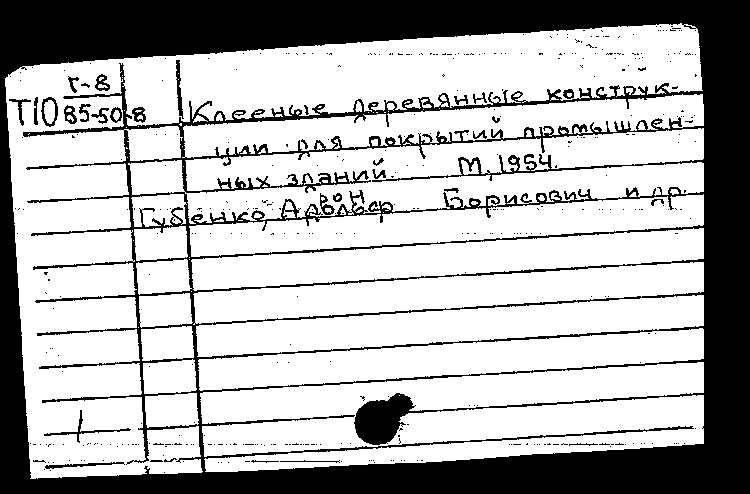 Г-8
Т10 85-50-8 Клееные деревянные конструк-
ции для покрытий промышлен-
ных зданий. М, 1954.
Губенко, Борисович и др.
1